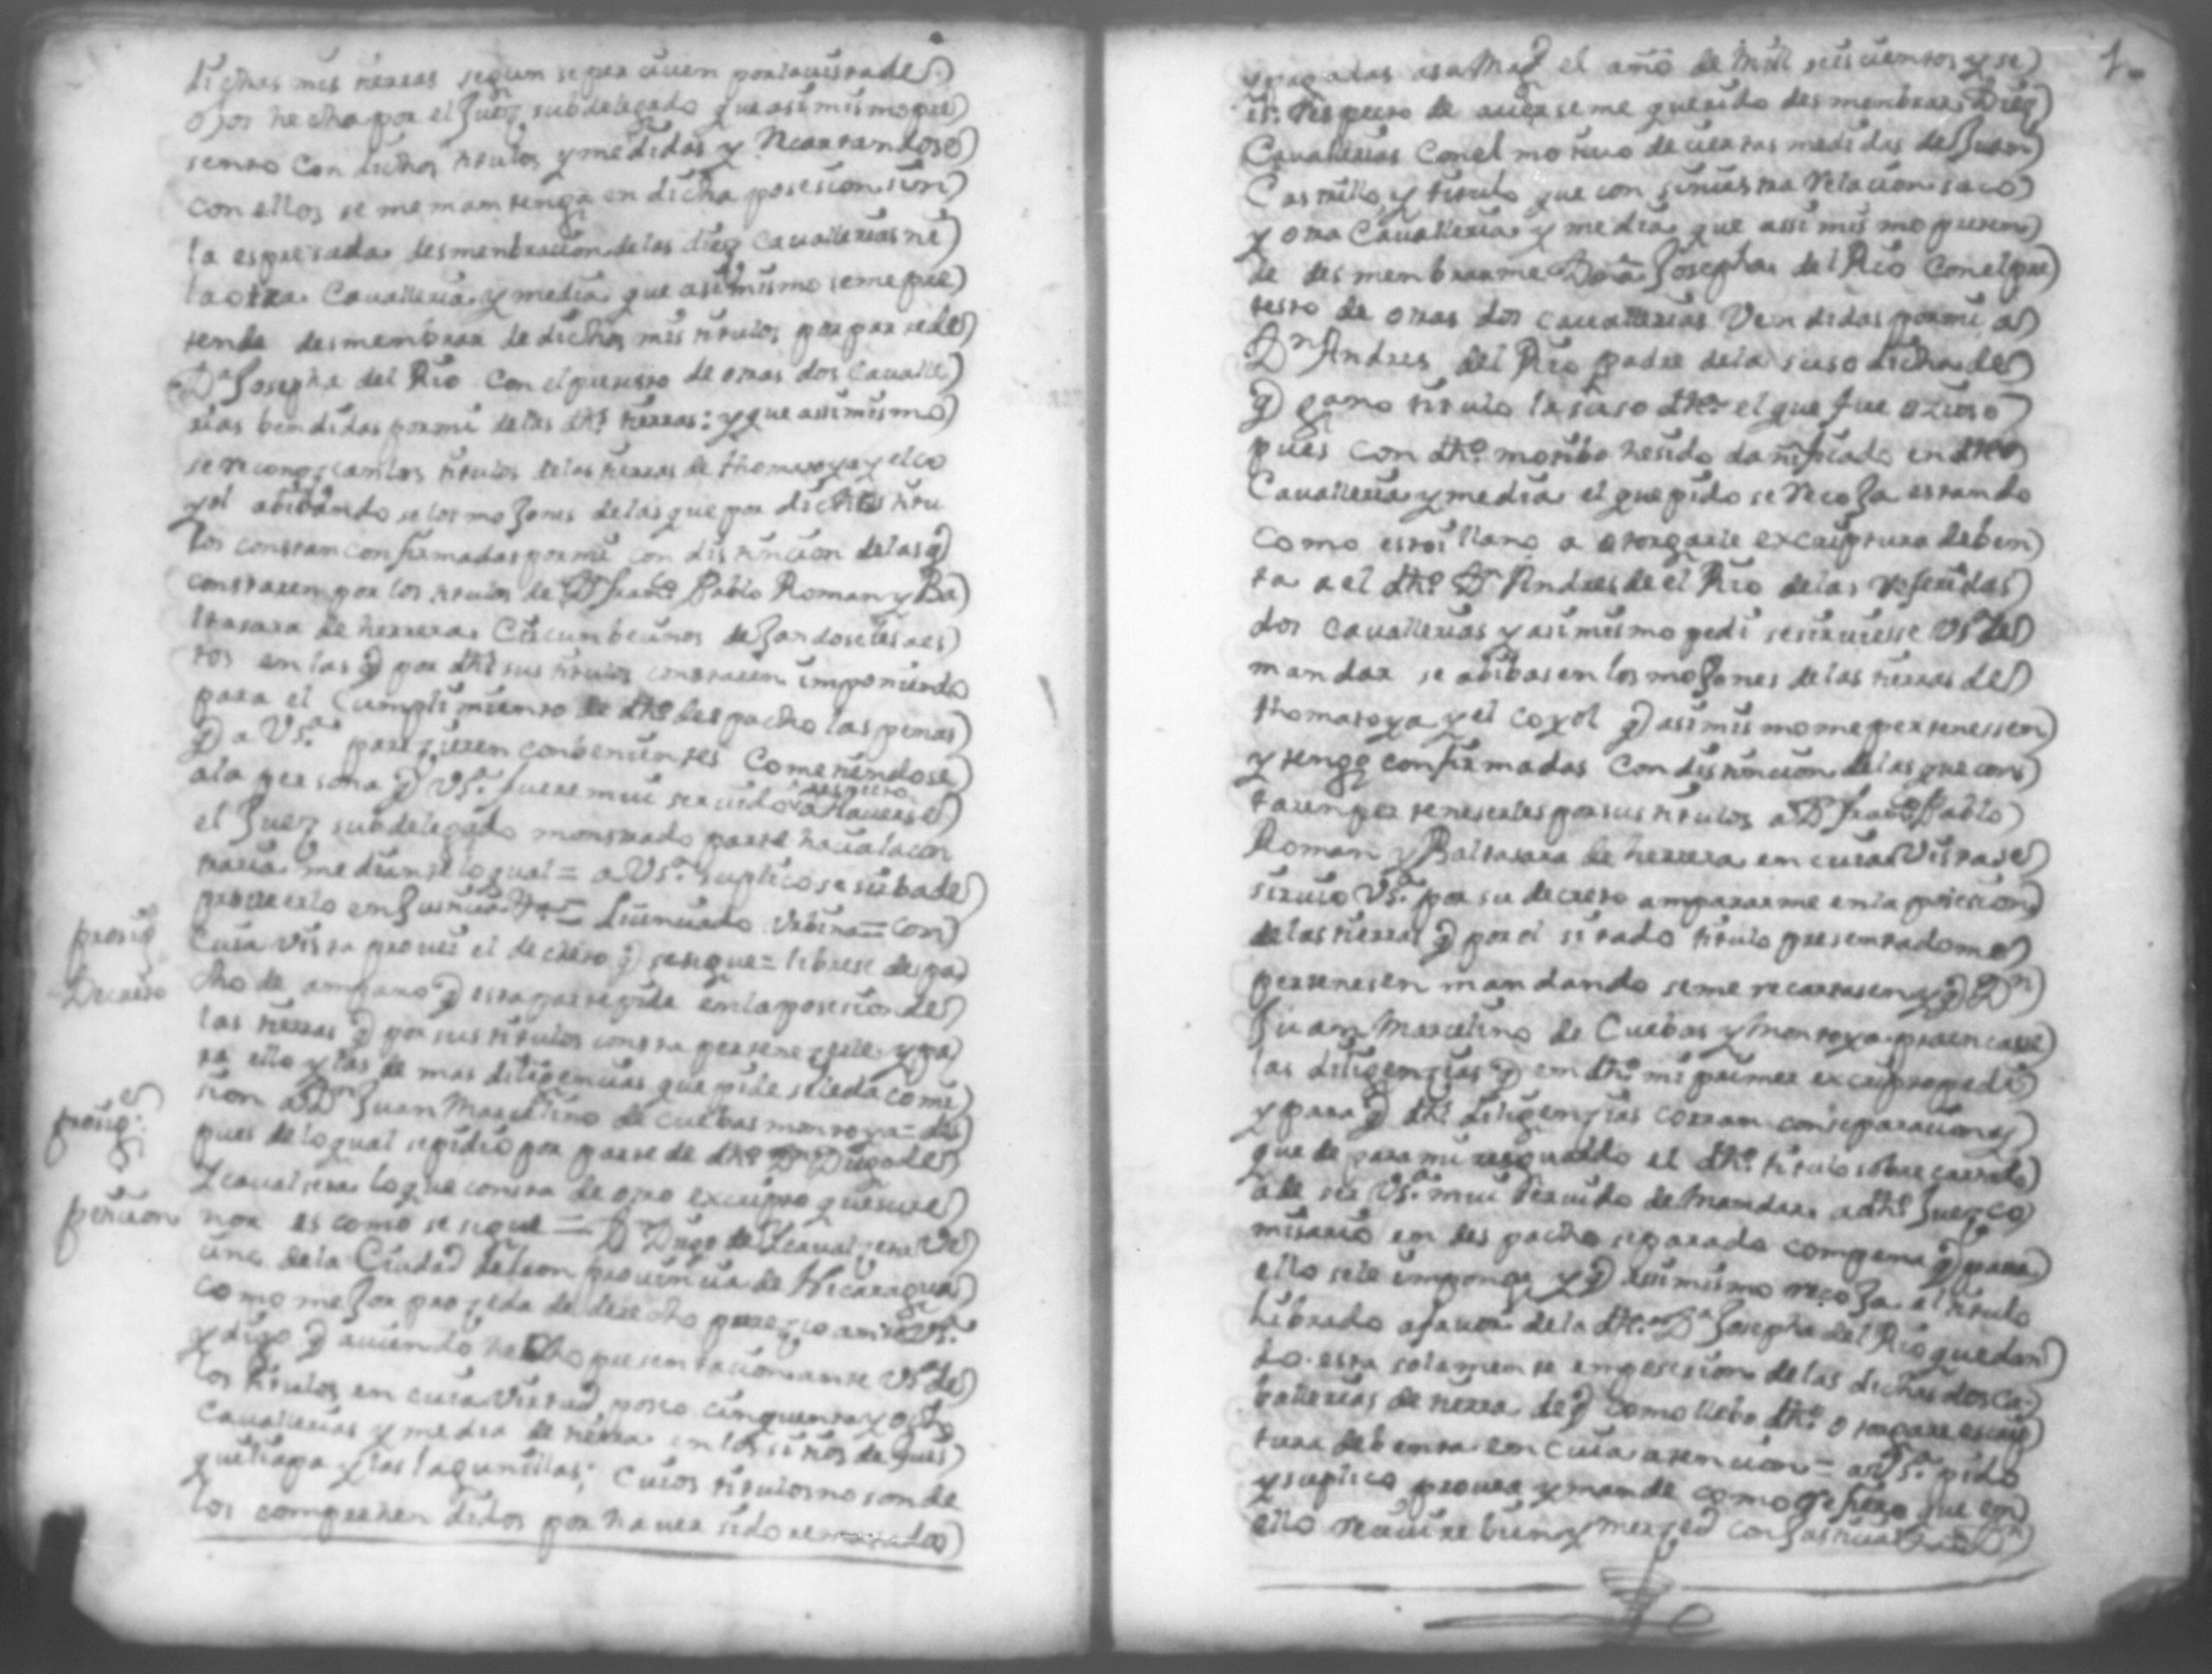 dichas mis tierras segun se perciven por la vista de
ojos hecha por el Juez subdelegado que asi mismo pre
sento con dichos titulos y medidas y Recartandose
con ellos se me mantenga en dicha posesion sin
la espresada desmembracion de las diez cavallerias ni
la otra Cavalleria y media que asi mismo se me pre
tende desmembrar de dichos mis titulos por parte de
Da Josepha del Rio con el pretesto de otras dos Cavalle
rias bendidas por mi de las dhas tierras: y que assi mismo
se reconoscan los titulos de las tierras de thomatoya y el co
yol abibando se los mojones de las que por dichos titu
los constan confirmadas por mi con distincion de las q
constaren por los titulos de Dn franco Pablo Roman y Ba
ltasara de herrera Circumbecinos dejandoseles a es
tos en las q por dhos sus titulos constaren imponiendo
para el Cumplimiento de dho despacho las penas
q a VSa parezieren conbenientes Cometiendose
a la persona q VSa fuere mui servido respecto a Haverse
el Juez subdelegado monstrado parte hacia la con
traria mediante lo qual = a VSa suplico se sirba de
proveerlo en Justicia Va = Licenciado Urbina = Con
prosig Cuia Vista provei el decreto q se sigue = librese despa
Decreto cho de amparo q esta parte pide en la posesion de
las tierras q por sus titulos consta pertenezerle y pa
ra ello y las de mas diligencias que pide se le da comi
sion a Dn Juan Marcelino de cuebas montoya = des
prosig: pues de lo qual se pidio por parte de dho Dn Diego de
Ycaualzeta lo que consta de otro excripto que su te
peticion nor es como se sigue = Dn Diego de Ycaualzeta Ve
cino de la Ciudad de leon provincia de Nicaragua
como mejor prozeda de derecho parezco ante VSa
y digo q aviendo hecho presentacion ante VSa de
los titulos en cuia Virtud poseo cinquenta y ocho
Cavallerias y media de tierra en los sitios de ques
queliapa y las lagunillas; Cuios titulos no son de
los comprehendidos por haver sido rematados

1.
y pagadas a su Magd el año de mill seiscientos y se
is: Respecto de averseme querido desmembrar Diez
Cavallerias Con el motivo de ciertas medidas de Juan
Castrillo y titulo que con siniestra Relacion saco
y otra Cavalleria y media que assi mismo preten
de desmembrarme Doña Josepha del Rio con el pre
testo de otras dos cavallerias Vendidas por mi a
Dn Andres del Rio padre de la suso dicha de
q gano titulo la suso dha el que fue ozioso
pues con dho motibo he sido damnificado en dha
Cavalleria y media el que pido se Recoja estando
como estoi llano a otorgarle excriptura de ben
ta a el dho Dn Andres de el Rio de las referidas
dos cavallerias y asi mismo pedi se sirviesse VSa de
mandar se abibasen los mojones de las tierras de
thomatoya y el coyol q asi mismo me pertenessen
y tengo confirmadas Con distincion de las que cons
taren pertenescerles por sus titulos a Dn franco Pablo
Roman y Baltasara de herrera en cuia Vista se
sirvio VSa por su decreto ampararme en la posesion
de las tierras q por el sitado titulo presentado me
pertenesen mandando se me recartasen y q Dn
Juan Marcelino de Cuebas y montoya practicase
las diligenzias q en dho mi primer excripto pedi
y para q dhas diligenzias corran con separacion y
quede para mi resguardo el dho titulo sobrecartado
a de ser VSa mui servido de mandar a dho Juez co
misario en despacho separado con pena q para
ello se le imponga y q assi mismo recoja el titulo
Librado a favor de la dha Da Josepha del Rio quedan
do esta solamente en posesion de las dichas dos ca
ballerias de tierra de q como llebo dho otorgare escrip
tura de benta en cuia atencion = a VSa pido
y suplico provea y mande como refiero que en
ello recivire bien y merzed con Justicia